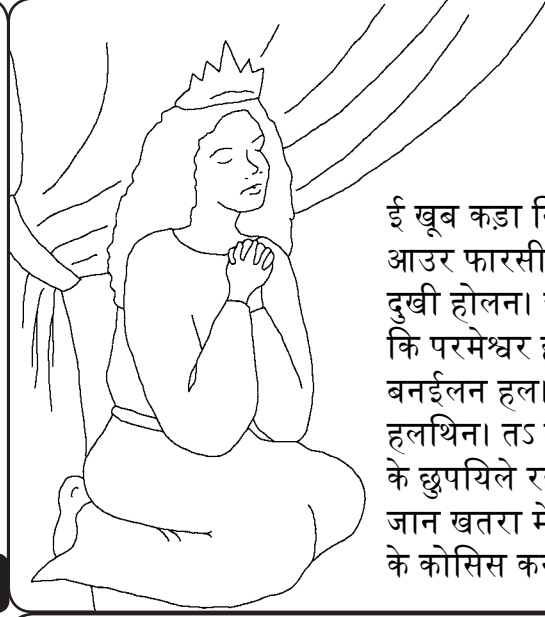 ई खूब कड़ा
आउर फारसी
दुखी होलन।
कि परमेश्वर
बनईलन हल।
हलथिन। तऽ
के छुपयिले
जान खतरा
के कोसिस